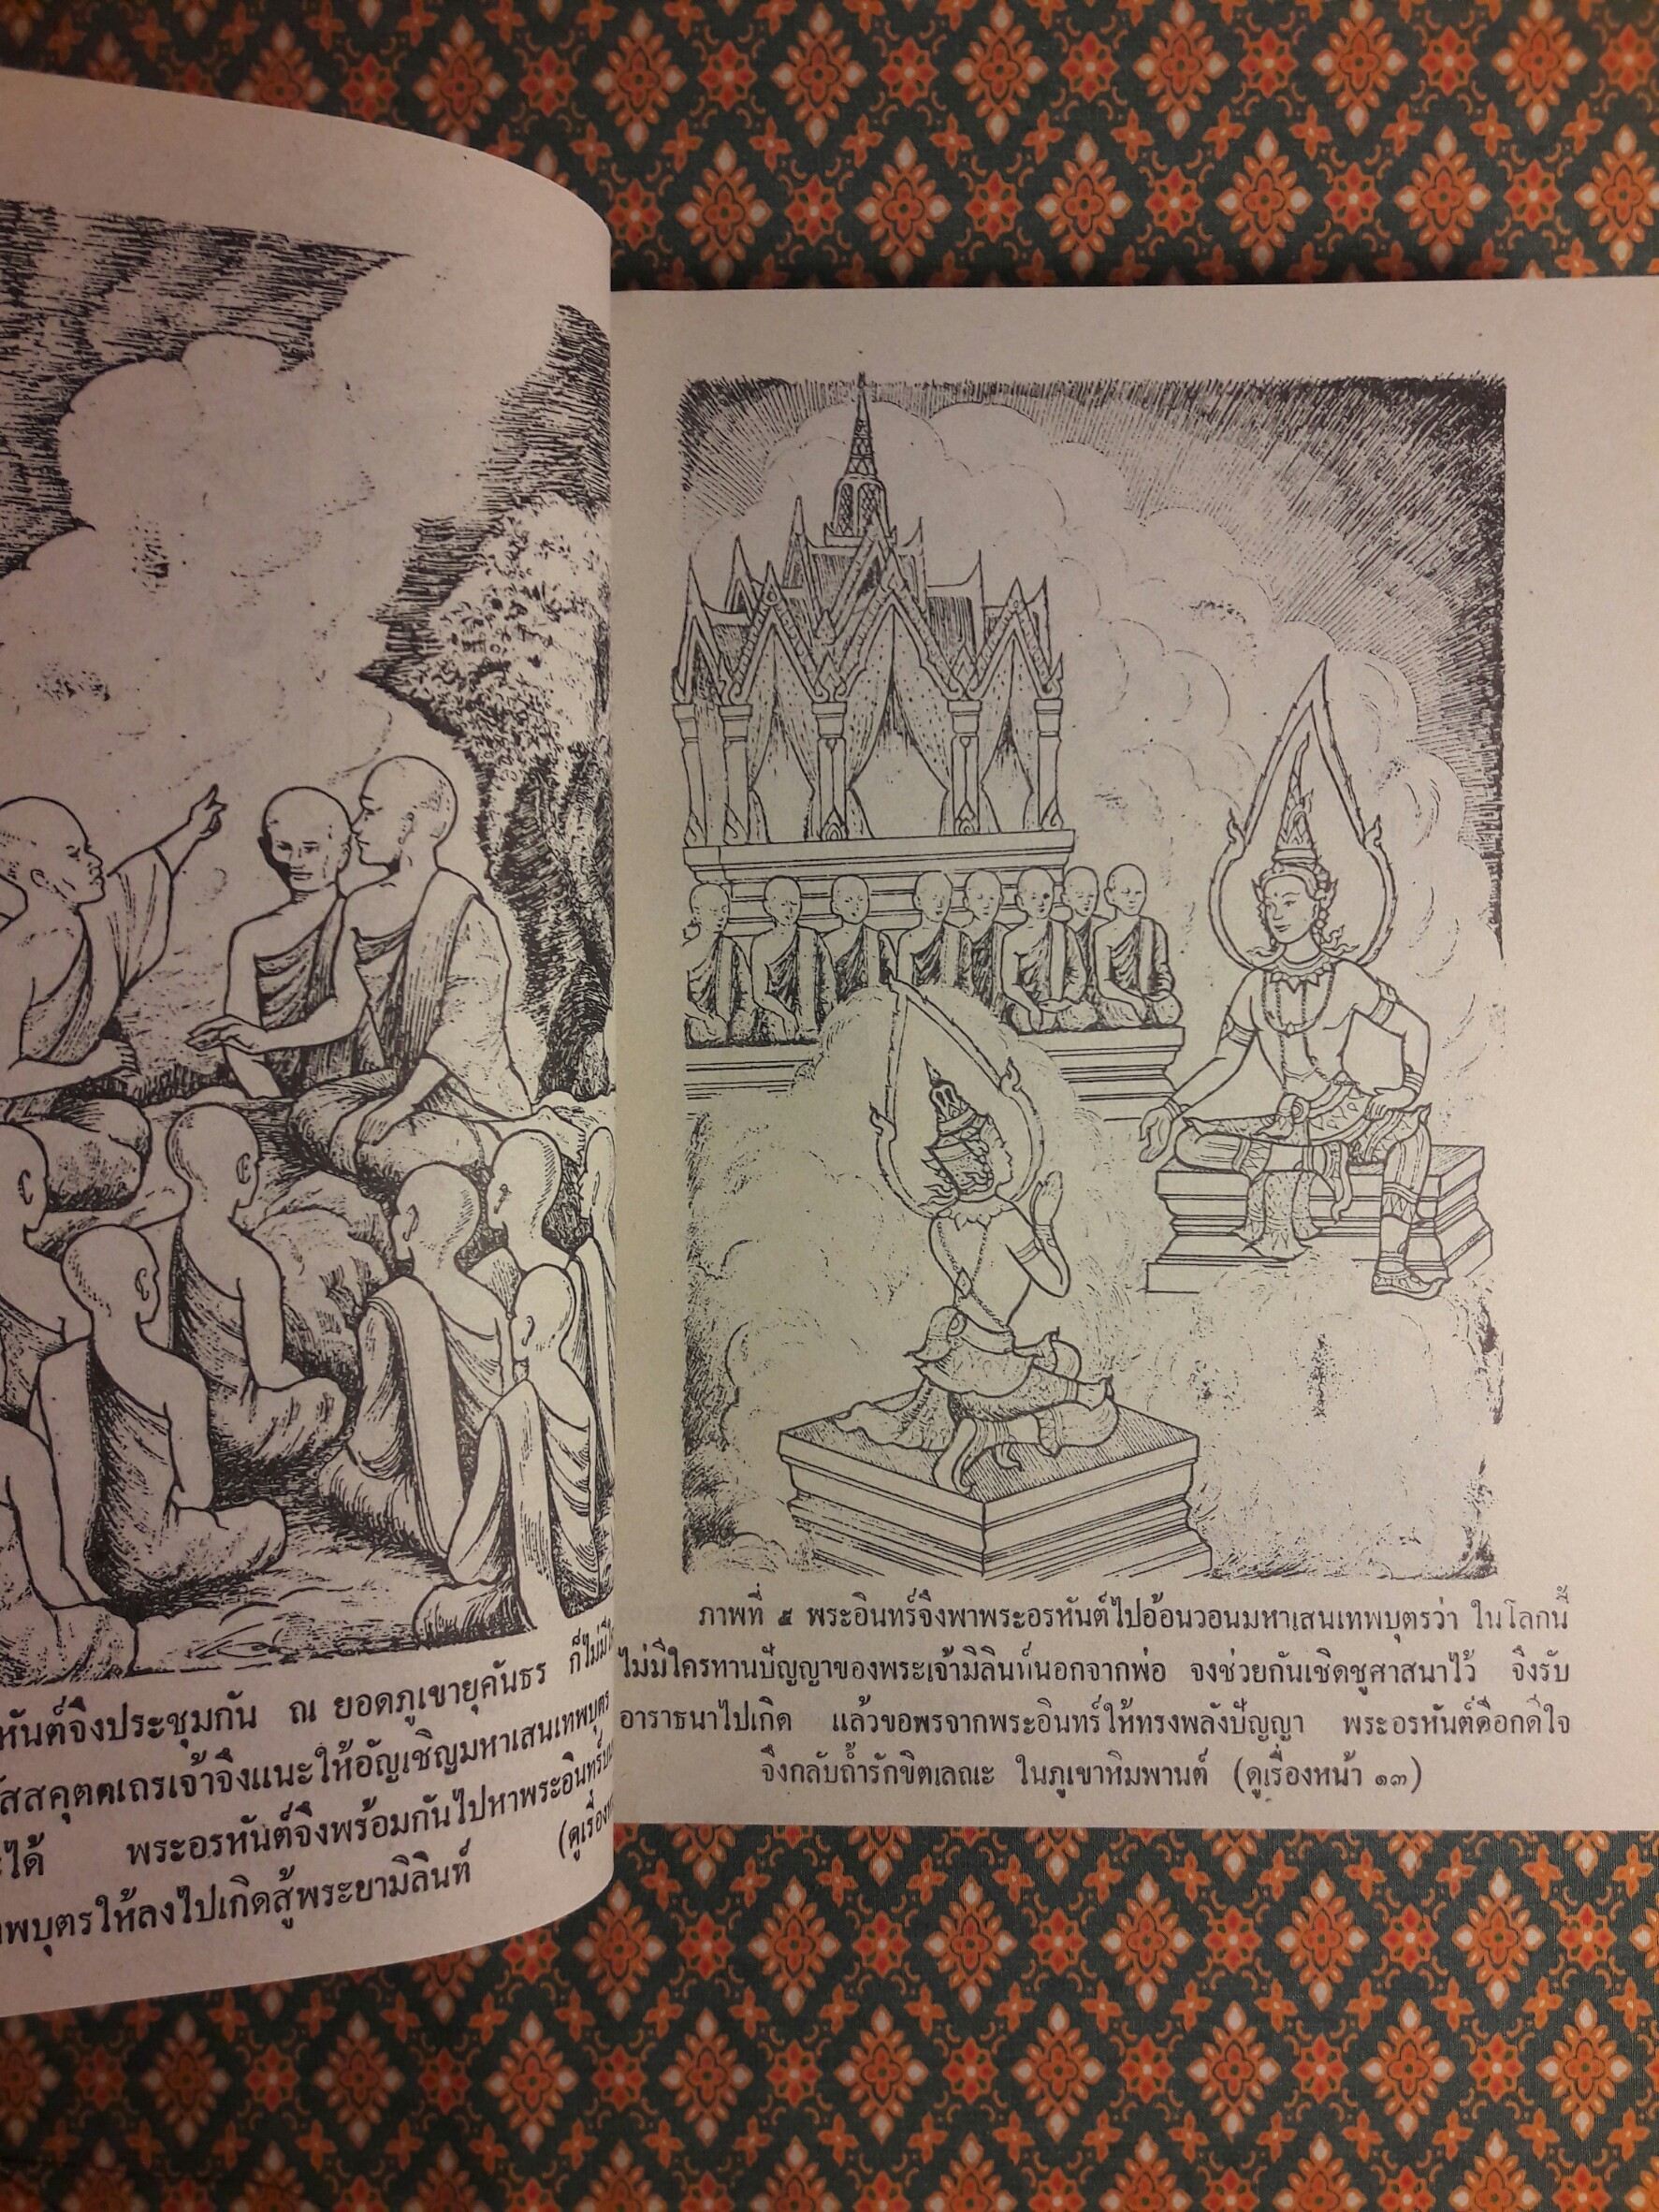 หันต์จึงประชุมกัน ณ ยอดภูเขายุคันธร ก็ไม่มี
สสคุตตเถรเจ้าจึงแนะให้อัญเชิญมหาเสนเทพบุตร
ได้ พระอรหันต์จึงพร้อมกันไปหาพระอินทร์
พบุตรให้ลงไปเกิดสู้พระยามิลินท์ (ดูเรื่อง
ภาพที่ ๕ พระอินทร์จึงพาพระอรหันต์ไปอ้อนวอนมหาเสนเทพบุตรว่า ในโลกนี้
ไม่มีใครทานปัญญาของพระเจ้ามิลินท์นอกจากพ่อ จงช่วยกันเชิดชูศาสนาไว้ จึงรับ
อาราธนาไปเกิด แล้วขอพรจากพระอินทร์ให้ทรงพลังปัญญา พระอรหันต์ดีอกดีใจ
จึงกลับถ้ำรักขิตเลณะ ในภูเขาหิมพานต์ (ดูเรื่องหน้า ๑๓)